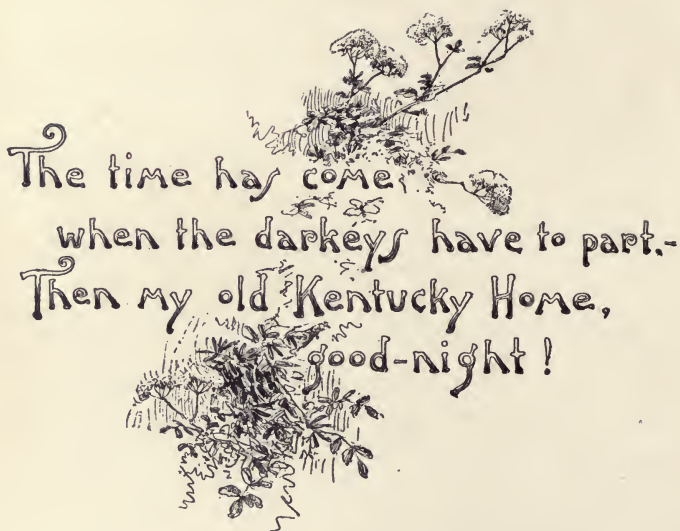 The time has come
when the darkeys have to part.-
Then my old Kentucky Home,
good-night!